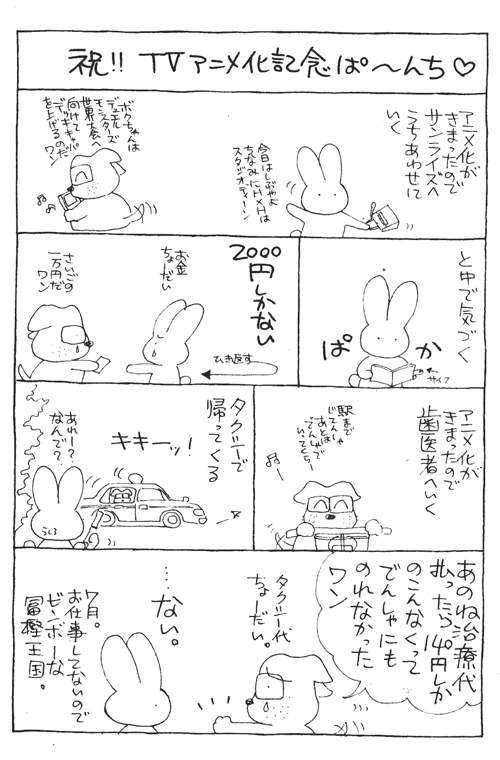 祝!! TVアニメ化記念ぱ〜んち♡
アニメ化が
きまったので
サンライズへ
うちあわせに
いく
今日はしぶやよ
ちなみにH×Hは
スタジオディーン
ボクちゃんは
デュエル
モンスターズ
世界大会へ
向けて
デッキキャパ
を上げるのだ
ワン
と中で気づく
ぱ
か
サイフ
2000円しかない
ひき返す
お金
ちょーだい
さいごの
一万円だ
ワン
アニメ化が
きまったので
歯医者へいく
駅まで
じてんしゃ
あとは
でんしゃで
いってくらー
タクシーで
帰ってくる
キキーッ!
あれー?
なんで?
うしろ
あのね治療代
払ったら140円しか
のこんなくって
でんしゃにも
のれなかった
ワン
タクシー代
ちょーだい。
……
ない。
7月。
お仕事してないので
ビンボーな
冨樫王国。